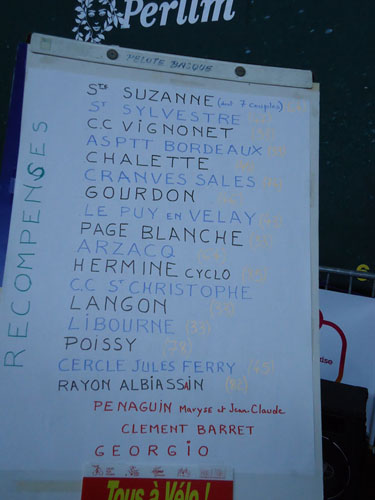 Perlim
PELOTE BASQUE
RECOMPENSES
Ste SUZANNE (dont 7 couples)
St SYLVESTRE
C.C VIGNONET
ASPTT BORDEAUX
CHALETTE
CRANVES SALES
GOURDON
LE PUY EN VELAY
PAGE BLANCHE
ARZACQ
HERMINE CYCLO
C.C St CHRISTOPHE
LANGON
LIBOURNE (33)
POISSY (78)
CERCLE JULES FERRY (45)
RAYON ALBIASSAIN (82)
PENAGUIN Maryse et Jean-Claude
CLEMENT BARRET
GEORGIO
Tous à Vélo !